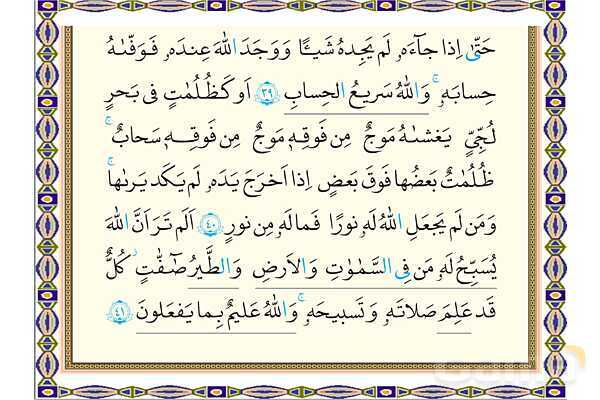 حَتّىٰ اِذا جآءَهٗ لَم يَجِدهُ شَيـًٔا وَ وَجَدَ اللهَ عِندَهٗ فَوَفّىٰهُ
حِسابَهٗ ۗ وَ اللهُ سَريعُ الحِسابِ ٣٩ اَو كَظُلُمٰتٍ فى بَحرٍ
لُجِّىٍّ يَغشىٰهُ مَوجٌ مِن فَوقِهٖ مَوجٌ مِن فَوقِهٖ سَحابٌ ۚ
ظُلُمٰتٌ بَعضُها فَوقَ بَعضٍ اِذا اَخرَجَ يَدَهٗ لَم يَكَد يَرىٰها ۗ
وَ مَن لَم يَجعَلِ اللهُ لَهٗ نورًا فَما لَهٗ مِن نورٍ ٤٠ اَلَم تَرَ اَنَّ اللهَ
يُسَبِّحُ لَهٗ مَن فِى السَّمٰوٰتِ وَ الاَرضِ وَ الطَّيرُ صٰٓفّٰتٍ ۖ كُلٌّ
قَد عَلِمَ صَلاتَهٗ وَ تَسبيحَهٗ ۗ وَ اللهُ عَليمٌ بِما يَفعَلونَ ٤١